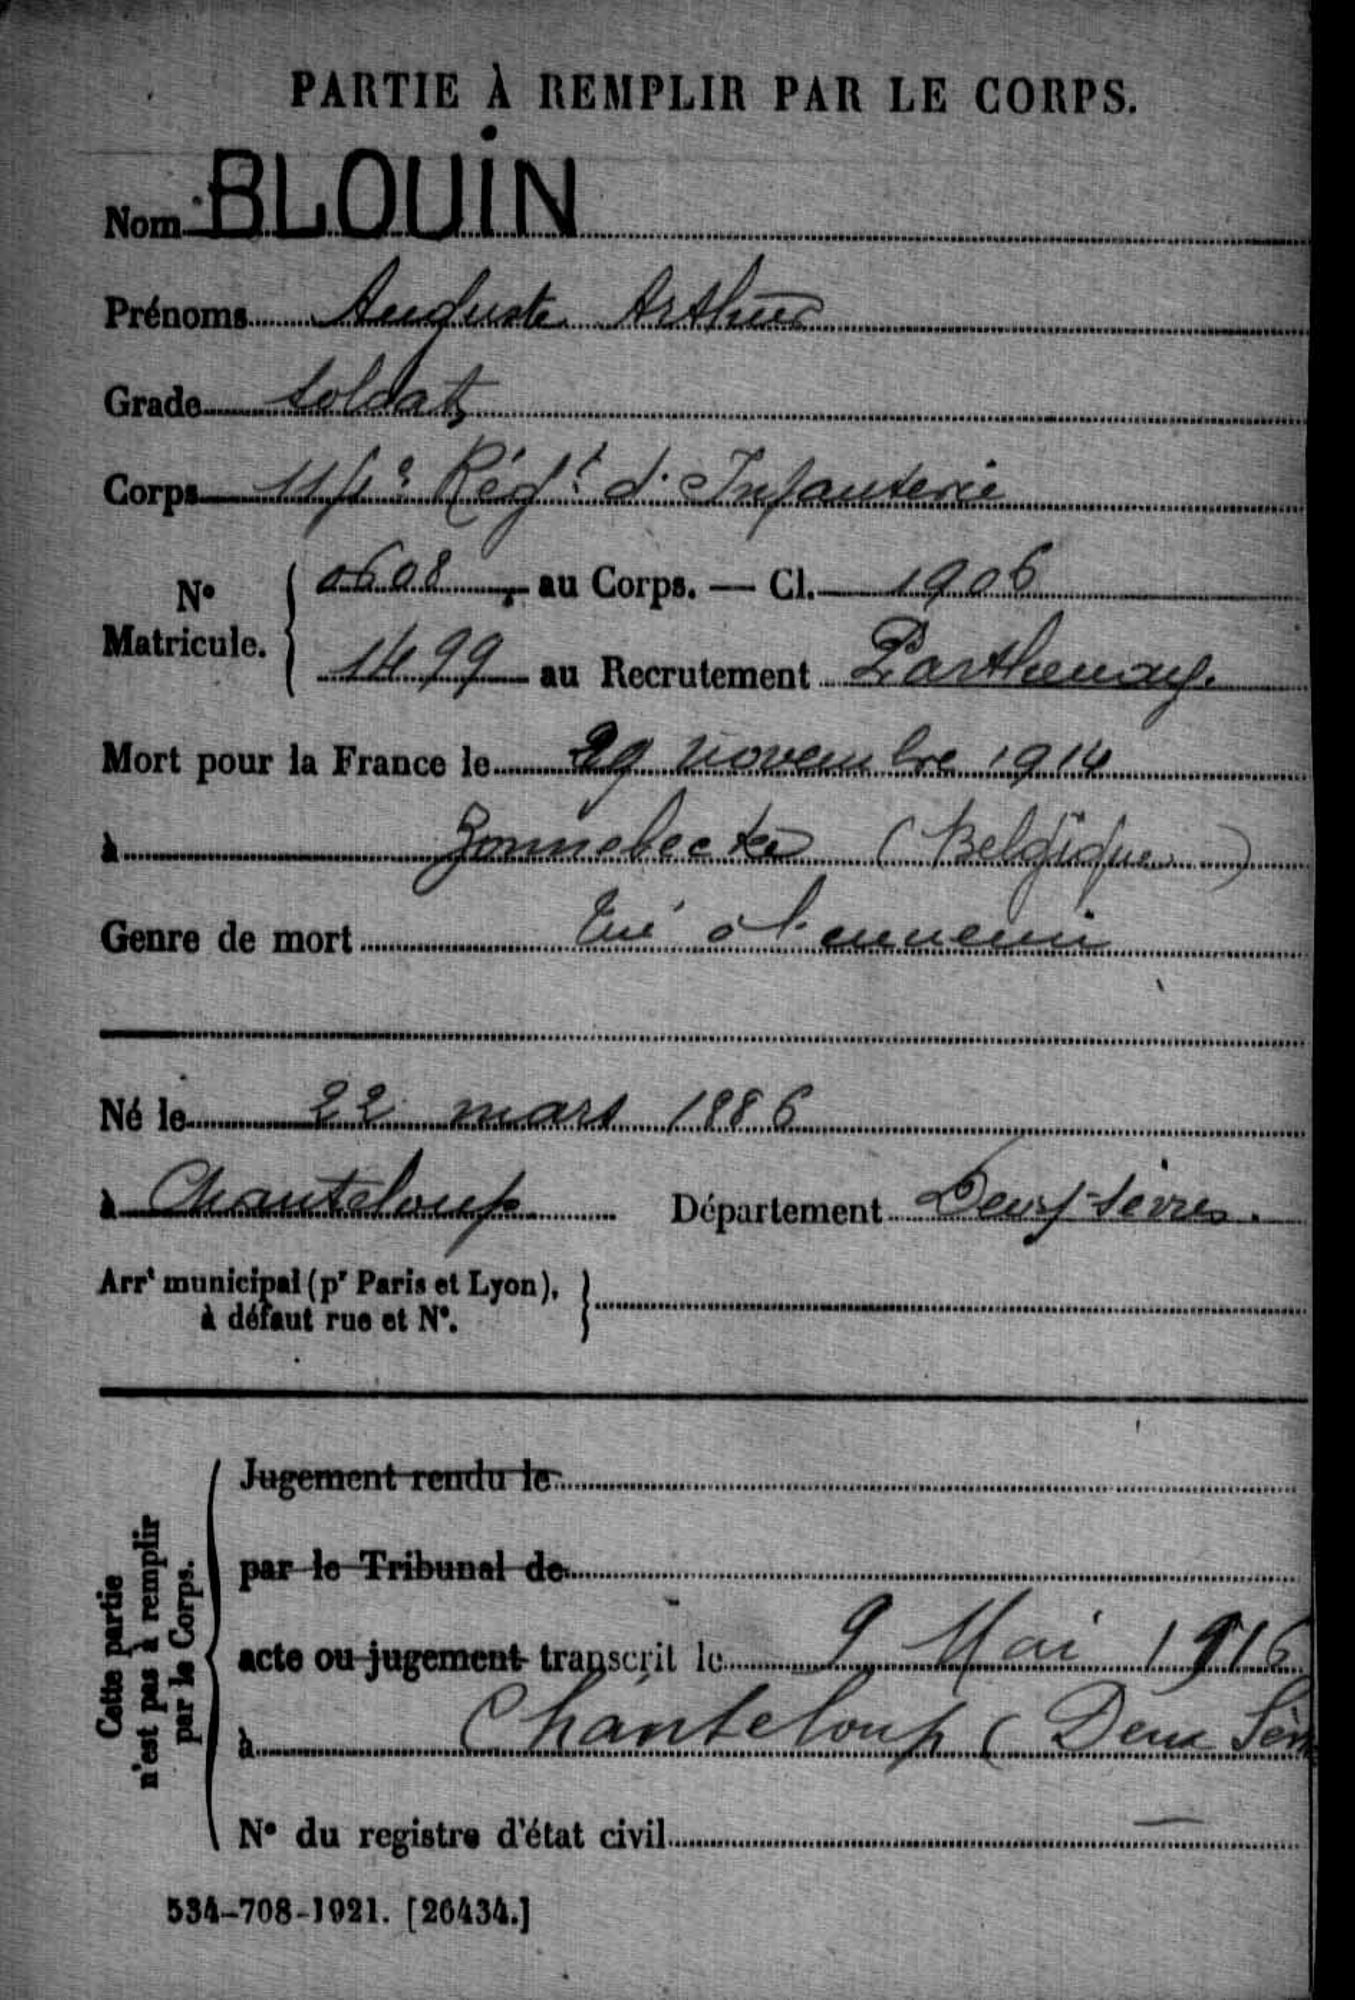 PARTIE À REMPLIR PAR LE CORPS.
Nom BLOUIN
Prénoms Auguste Arthur
Grade Soldat
Corps 114e Régt d'Infanterie
No Matricule. { 0608, au Corps. — Cl. 1906
1499 au Recrutement Parthenay.
Mort pour la France le 29 novembre 1914
à Zonnebecke (Belgique)
Genre de mort Tué à l'ennemi
Né le 22 mars 1886
à Chanteloup Département Deux-Sèvres.
Arrt municipal (pr Paris et Lyon), }
à défaut rue et No.
Cette partie
n'est pas à remplir
par le Corps.
Jugement rendu le
par le Tribunal de
acte ou jugement transcrit le 9 Mai 1916
à Chanteloup (Deux Sèv
No du registre d'état civil —
534-708-1921. [26434.]